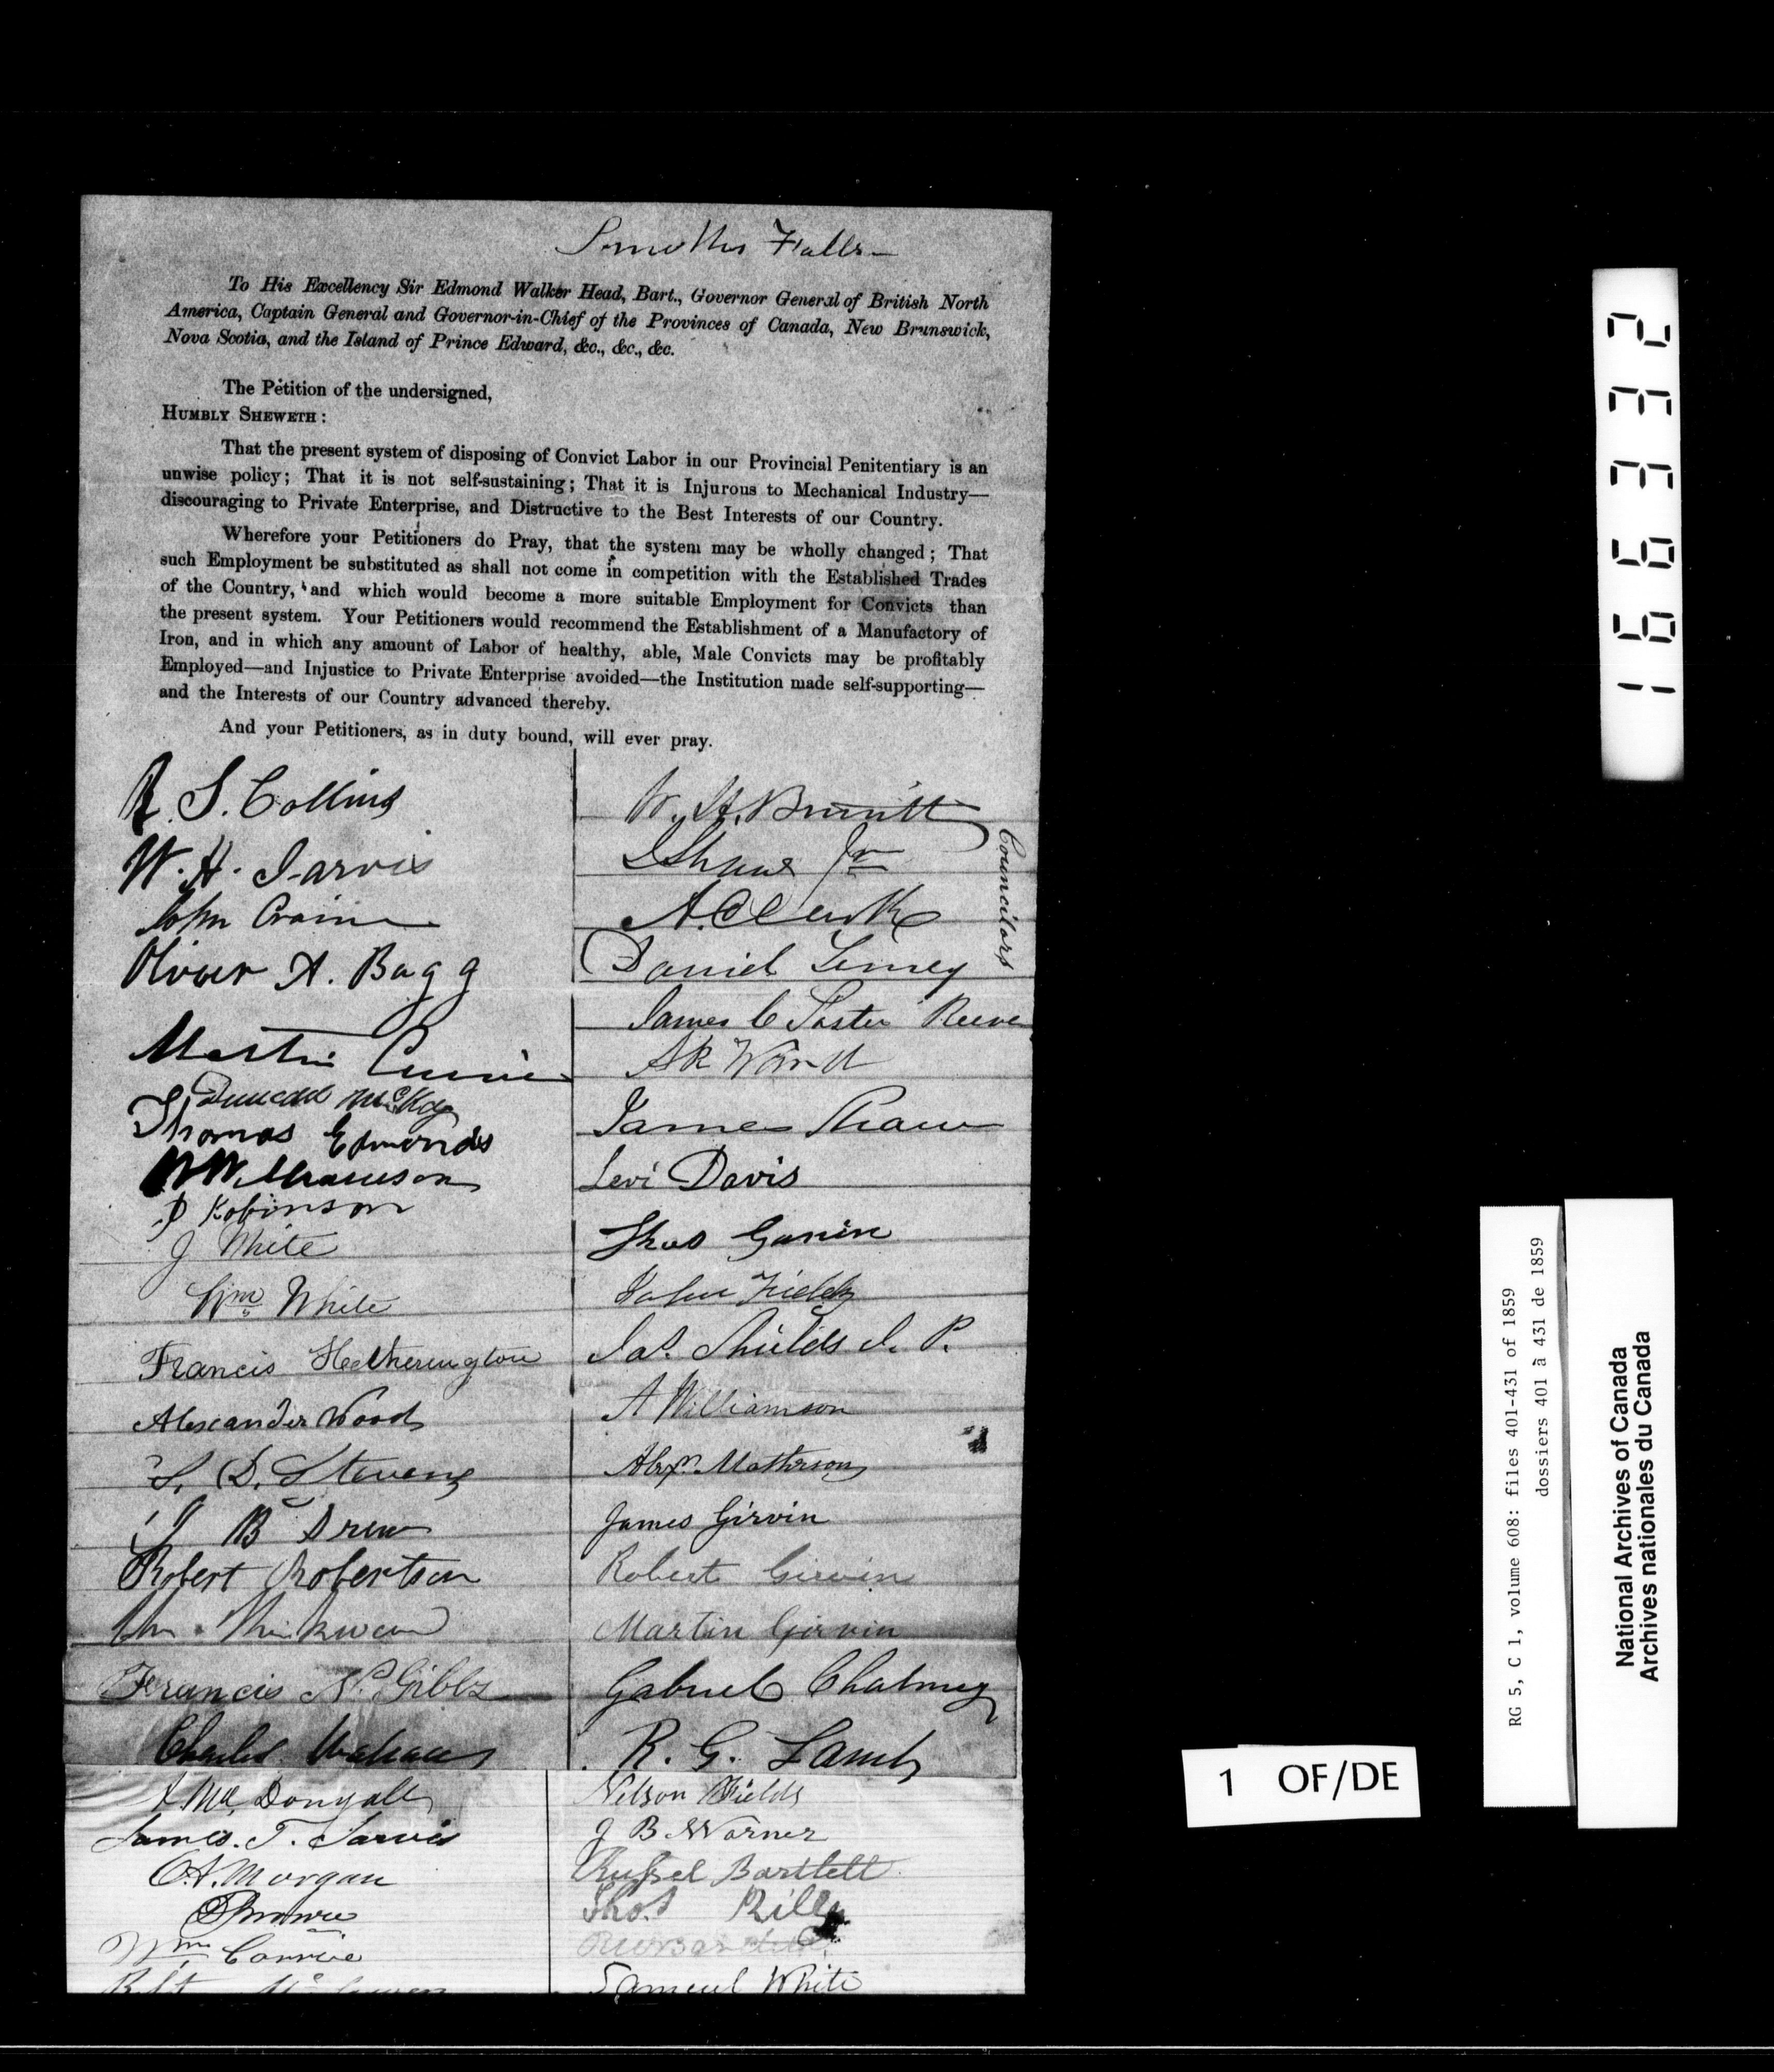 Falls
To His Excellency Sir Edmond Walker Head, Bart., Governor General of British North
America, Captain General and Governor-in-Chief of the Provinces of Canada, New Brunswick,
Nova Scotia, and the Island of Prince Edward, &c., &c., &c.
The Petition of the undersigned,
HUMBLY SHEWETH:
That the present system of disposing of Convict Labor in our Provincial Penitentiary is an
unwise policy; That it is not self-sustaining; That it is Injurous to Mechanical Industry—
discouraging to Private Enterprise, and Distructive to the Best Interests of our Country.
Wherefore your Petitioners do Pray, that the system may be wholly changed; That
such Employment be substituted as shall not come in competition with the Established Trades
of the Country, and which would become a more suitable Employment for Convicts than
the present system. Your Petitioners would recommend the Establishment of a Manufactory of
Iron, and in which any amount of Labor of healthy, able, Male Convicts may be profitably
Employed—and Injustice to Private Enterprise avoided—the Institution made self-supporting—
and the Interests of our Country advanced thereby.
And your Petitioners, as in duty bound, will ever pray.
R. S. Collins
W. H. Jarvis
John
Oliver A. Bagg
Martin
Duncan McKay
Thomas Edmonds
D Robinson
J White
Wm White
Francis Hetherington
Alexander Wood
S. D. Stevens
J B Drew
Robert Robertson
Francis N. Gibbs
Charles Wallace
A Mc Dougall
James. T. Jarvis
O.A. Morgan
Wm Corrie
W. H.
Shaw Jr
A. Clark
Daniel
Councilors
James C Foster Reeve
A R Ward
James Shaw
Levi Davis
Thos
John Fields
Jas. Shields J. P.
A Williamson
Alexr. Matheson
James Girvin
Robert Girvin
Martin Girvin
Gabriel
R. G. Lamb
Nelson Fields
J B Warner
Russel Bartlett
Thos
Samuel White
166332
RG 5, C 1, volume 608: files 401-431 of 1859
dossiers 401 à 431 de 1859
National Archives of Canada
Archives nationales du Canada
1 OF/DE